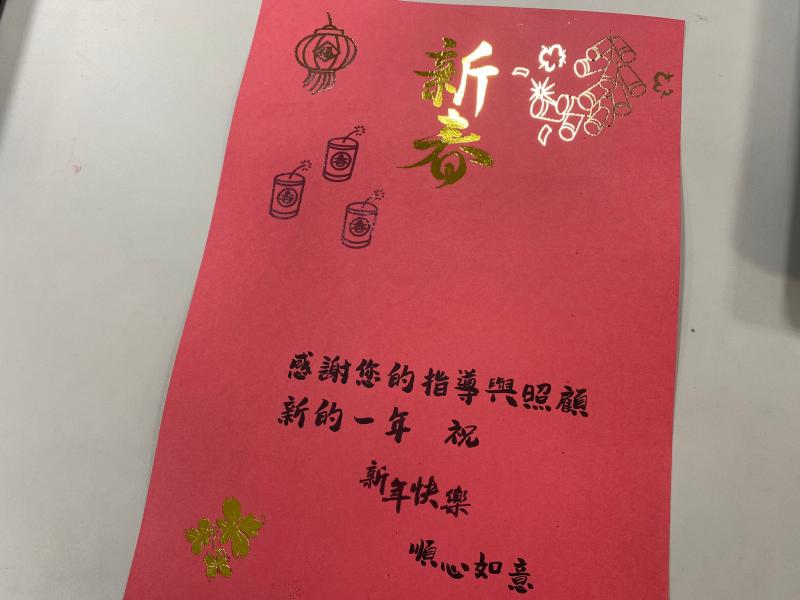 新春
感謝您的指導與照顧
新的一年 祝
新年快樂
順心如意